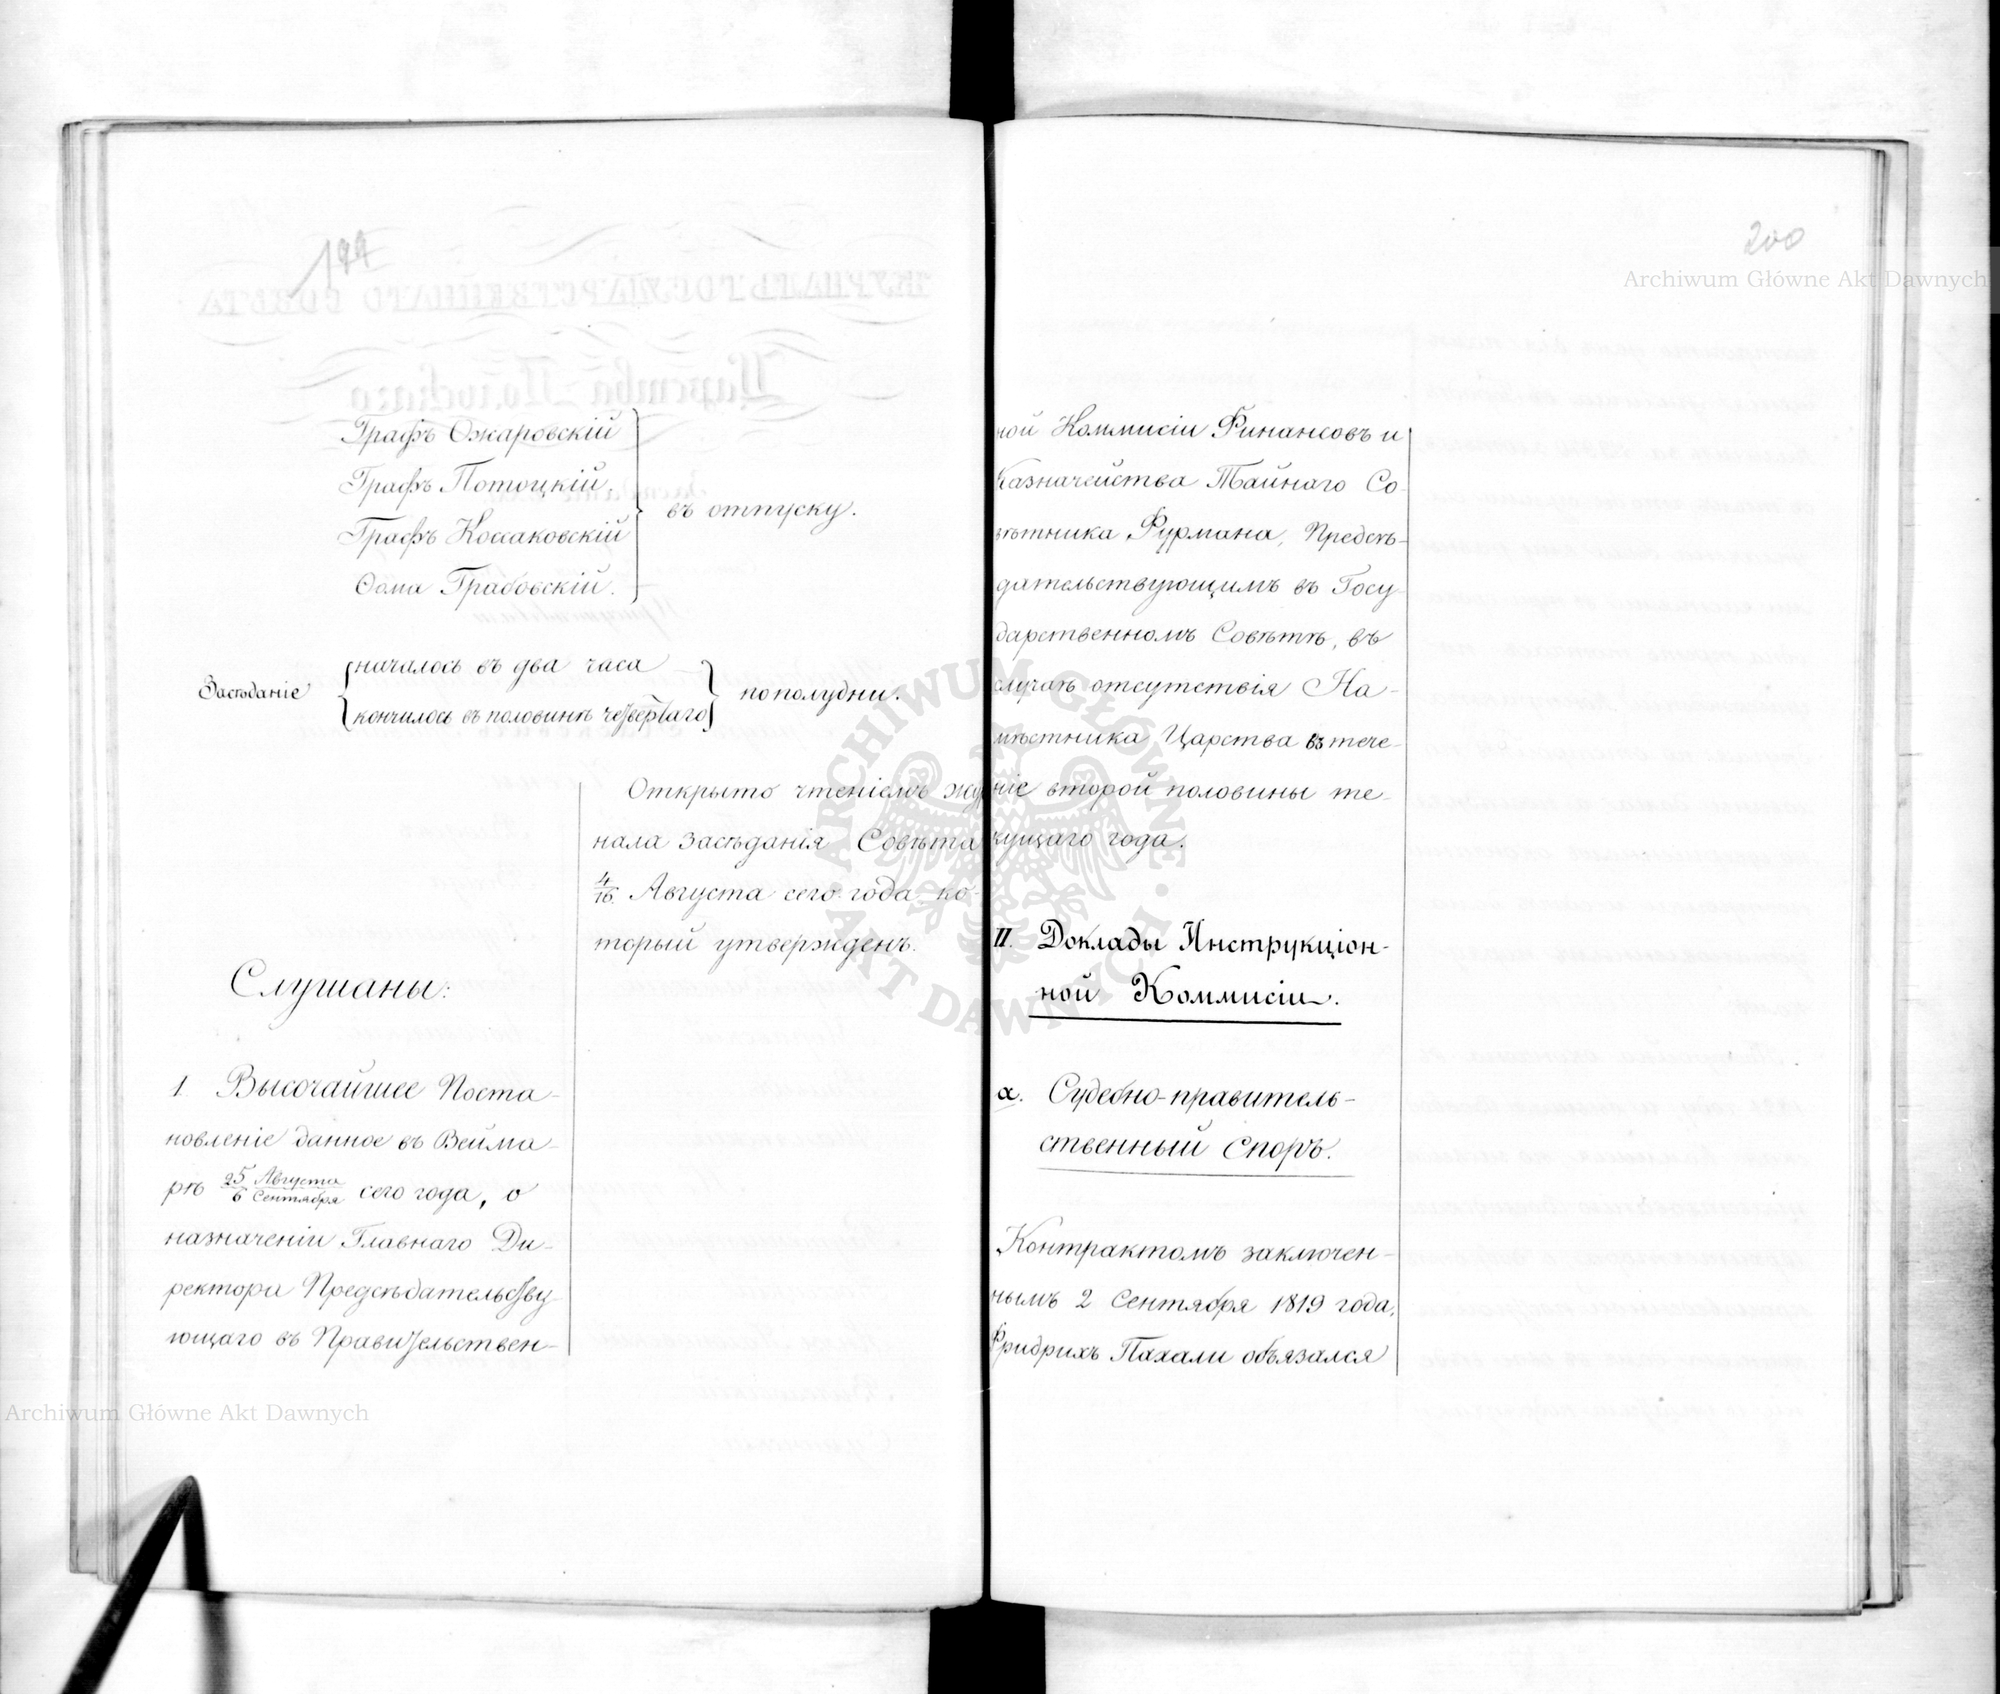 199
Графъ Ожаровскій
Графъ Потоцкій.
Графъ Коссаковскій
Ѳома Грабовскій.
въ отпуску.
Засѣданіе
началось въ два часа
кончилось въ половинѣ четвертаго
пополудни.
Открыто чтеніемъ жур
нала засѣданія Совѣта
4/16. Августа сего года, ко-
торый утвержденъ.
Слушаны:
1. Высочайшее Поста-
новленіе данное въ Вейма-
рѣ 25 Августа/6 Сентября сего года, о
назначеніи Главнаго Ди-
ректора Предсѣдательству-
ющаго въ Правительствен-
200
ной Коммисіи Финансовъ и
Казначейства Тайнаго Со-
вѣтника Фурмана, Предсѣ-
дательствующимъ въ Госу-
дарственномъ Совѣтѣ, въ
случаѣ отсутствія На-
мѣстника Царства въ тече-
ніе второй половины те-
кущаго года.
II. Доклады Инструкціон-
ной Коммисіи.
а. Судебно-правитель-
ственный Споръ.
Контрактомъ заключен-
нымъ 2 Сентября 1819 года,
Фридрихъ Пахали обязался
Archiwum Główne Akt Dawnych
Archiwum Główne Akt Dawnych
ARCHIWUM GŁÓWNE AKT DAWNYCH